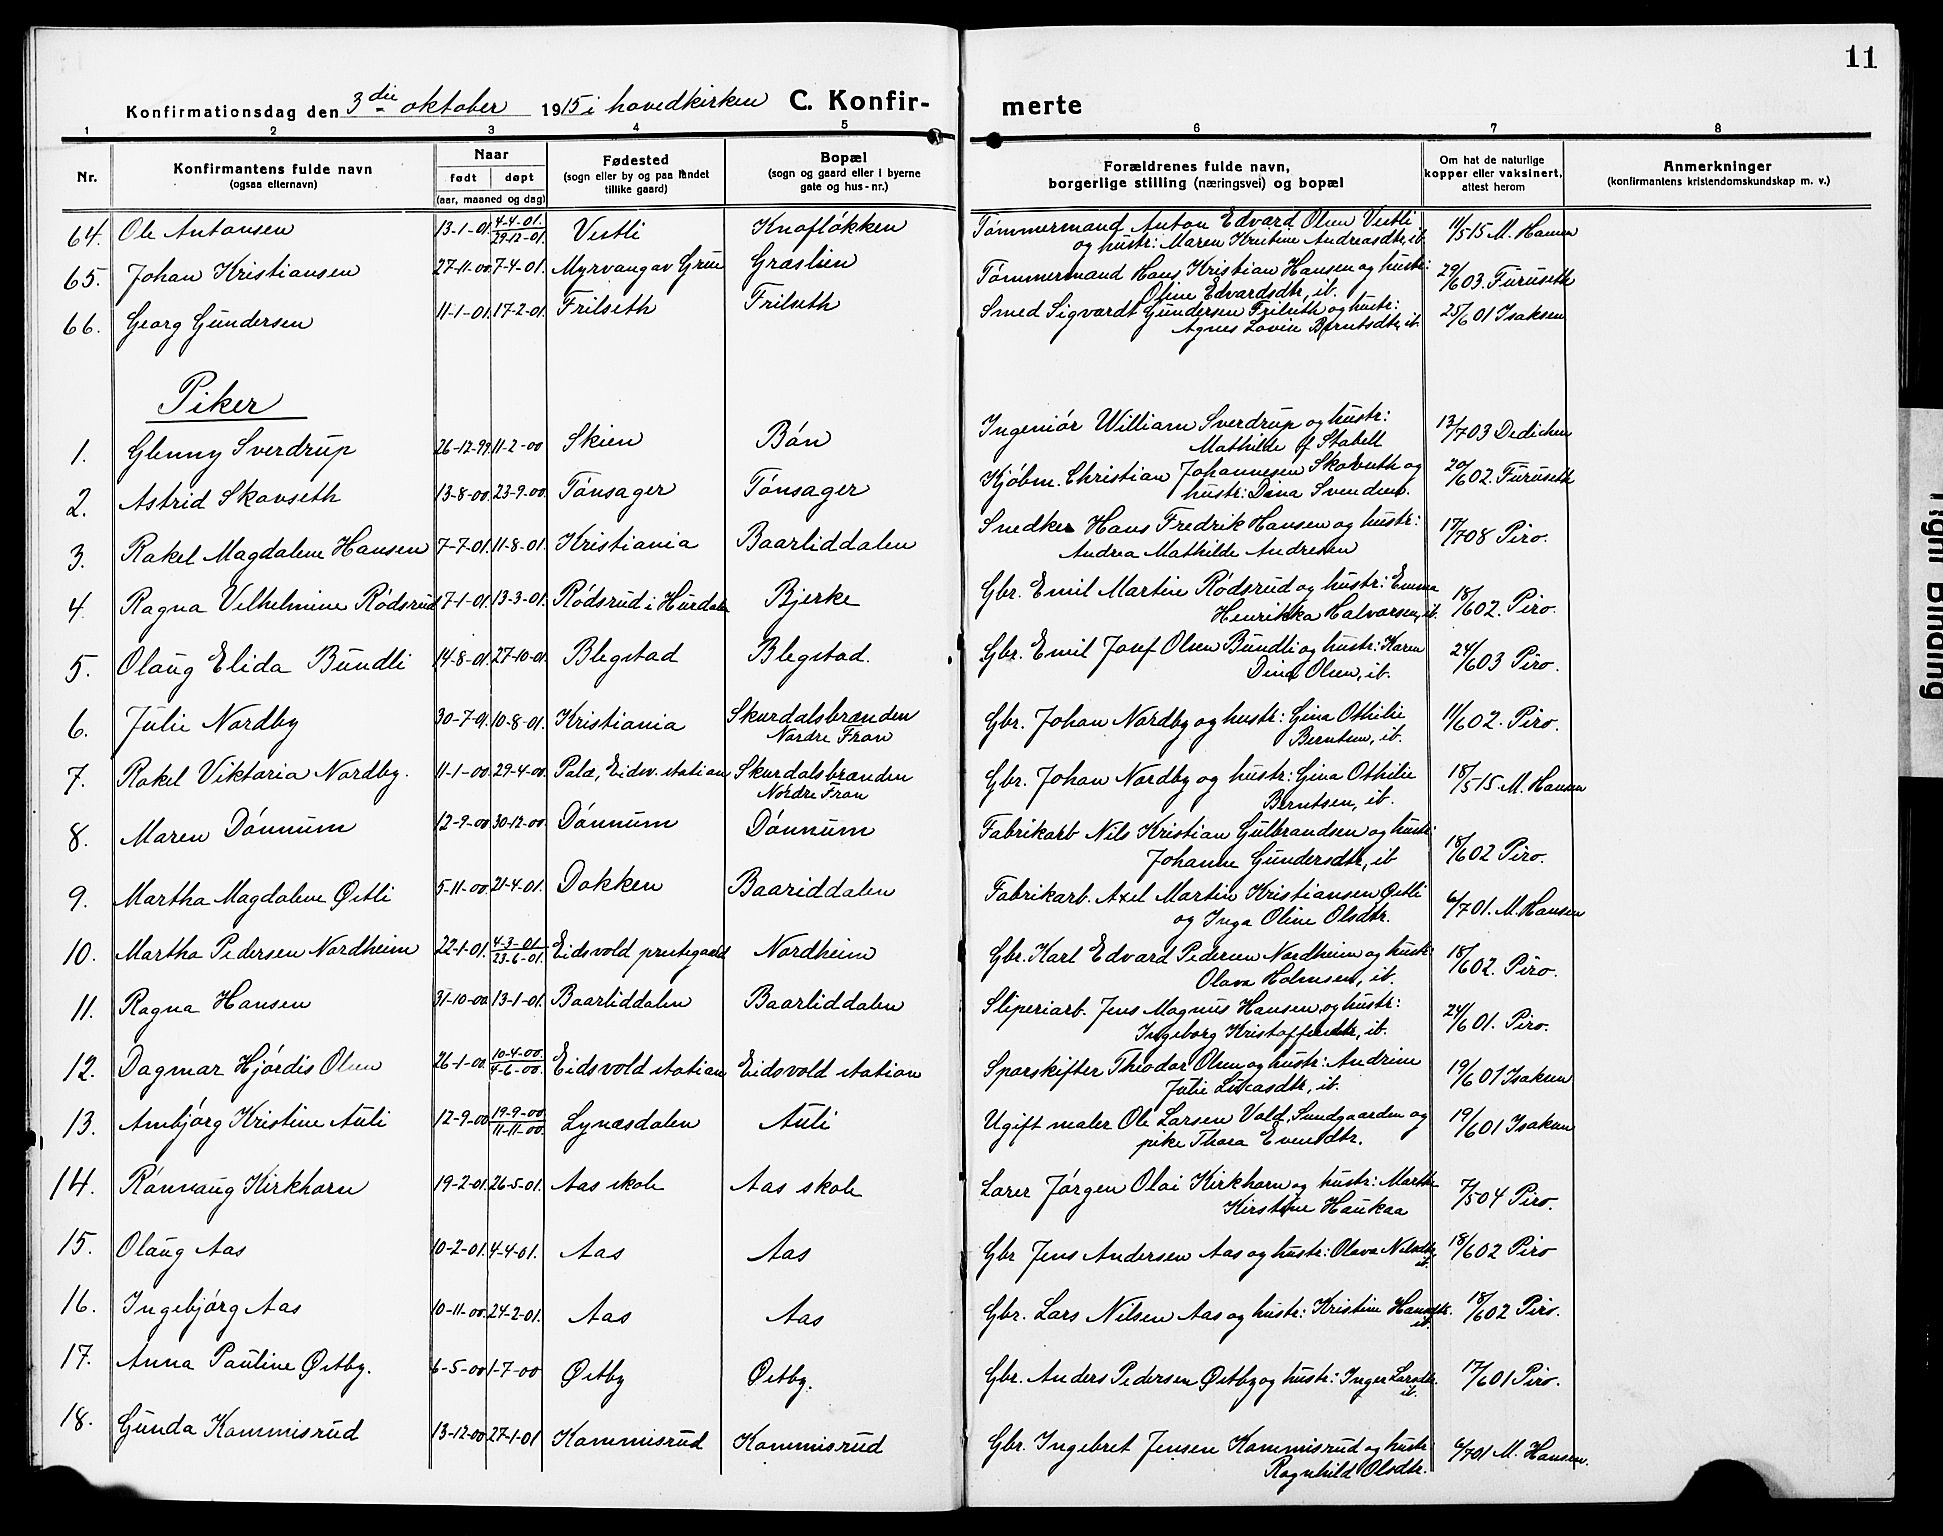 11
Konfirmationsdag den 3die oktober 1915 i hovedkirken C. Konfir- merte
1 2 3 4 5 6 7 8
Nr. Konfirmantens fulde navn (ogsaa elternavn) Naar født døpt (aar, maaned og dag) Fødested (sogn eller by og paa landet tillike gaard) Bopæl (sogn og gaard eller i byerne gate og hus-nr.) Forældrenes fulde navn, borgerlige stilling (næringsvei) og bopæl Om hat de naturlige kopper eller vaksinert, attest herom Anmerkninger (konfirmantens kristendomskundskap m. v.)
64. Ole Antonsen 13-1-01. 4-4-01. 29-12-01. Vestli Knofløkken Tømmermand Anton Edvard Olsen Vestli 11/5 15 M. Hansen
og hustr: Maren Kristine Andreasdtr, ib.
65. Johan Kristiansen 27-11-00 7-4-01. Myrvang av Grue Graslien Tømmermand Hans Kristian Hansen og hustr: 29/6 03. Furuseth
Oline Edvardsdtr, ib.
66. Georg Gundersen 11-1-01. 17-2-01. Frilseth Frilseth Smed Sigvardt Gundersen Frilseth og hustr: 25/6 01 Isaksen
Agnes Lovise Berntsdtr, ib.
Piker
1. Glenny Sverdrup 26-12-99. 11-2-00 Skien Bøn Ingeniør William Sverdrup og hustr: 13/7 03 Dedichen
Mathilde f Stabell
2. Astrid Skovseth 13-8-00. 23-9-00. Tønsager Tønsager Kjøbm. Christian Johannesen Skovseth og 20/6 02. Furuseth
hustr: Dina Svendsen.
3. Rakel Magdalene Hansen 7-7-01. 11-8-01. Kristiania Baarliddalen Snedker Hans Fredrik Hansen og hustr: 17/7 08 Piro.
Andrea Mathilde Andresen
4. Ragna Vilhelmine Rødsrud 17-1-01. 13-3-01. Rødsrud i Hurdalen Bjerke Gbr. Emil Martin Rødsrud og hustr: Emma 18/6 02. Piro.
Henrikka Halvorsen, ib.
5. Olaug Elida Bundli 14-8-01. 27-10-01. Blegstad Blegstad. Gbr. Emil Josef Olsen Bundli og hustr: Karen 24/6 03 Piro.
Dina Olsen, ib.
6. Julie Nordby 30-7-01. 10-8-01. Kristiania Skurdalsbrænden Gbr. Johan Nordby og hustr: Gina Othilie 11/6 02. Piro.
Nordre Fron Berntsen, ib.
7. Rakel Viktoria Nordby. 11-1-00. 29-4-00. Palæ, Eidsv. station Skurdalsbrænden Gbr. Johan Nordby og hustr: Gina Othilie 18/5 15. M. Hansen
Nordre Fron Berntsen, ib.
8. Maren Dønnum 12-9-00 30-12-00. Dønnum Dønnum Fabrikarb Nils Kristian Gulbrandsen og hustr: 18/6 02 Piro.
Johanne Gundersdtr, ib
9. Martha Magdalene Østli 5-11-00. 21-4-01. Dokken Baariddalen Fabrikarb. Axel Martin Kristiansen Østli 6/7 01. M. Hansen
og Inga Oline Olsdtr.
10. Martha Pedersen Nordheim 22-1-01. 4-3-01. 23-6-01. Eidsvold prestegaard Nordheim Gbr. Karl Edvard Pedersen Nordheim og hustr: 18/6 02. Piro.
Olava Holmsen, ib.
11. Ragna Hansen 31-10-00. 13-1-01. Baarliddalen Baarliddalen Sliperiarb. Jens Magnus Hansen og hustr: 24/6 01. Piro.
Ingeborg Kristoffersdtr, ib.
12. Dagmar Hjørdis Olsen 26-1-00. 10-4-00. 4-6-00. Eidsvold station Eidsvold station Sporskifter Theodor Olsen og hustr: Andrine 19/6 01 Isaksen
Julie Lucasdtr, ib.
13. Arnbjørg Kristine Auli 12-9-00 19-9-00 11-11-00. Lynæsdalen Auli Ugift maler Ole Larsen Vold, Sundgaarden og 19/6 01 Isaksen
pike Thora Evensdtr.
14. Rønnaug Kirkhorn 19-2-01. 26-5-01. Aas skole Aas skole Lærer Jørgen Olai Kirkhorn og hustr: Marthe 7/5 04 Piro.
Kirstine Haukaa
15. Olaug Aas 10-2-01. 4-4-01. Aas Aas Gbr Jens Andersen Aas og hustr: Olava Nilsdtr, 18/6 02 Piro
ib.
16. Ingebjørg Aas 10-11-00. 24-2-01. Aas Aas Gbr. Lars Nilsen Aas og hustr: Kristine Hansdtr. 18/6 02 Piro.
ib.
17. Anna Pauline Østby. 6-5-00 1-7-00 Østby Østby. Gbr. Anders Pedersen Østby og hustr: Inger Larsdtr. 17/6 01 Piro.
ib.
18. Gunda Kommisrud 13-12-00 27-1-01 Kommisrud Kommisrud Gbr. Ingebret Jensen Kommisrud og hustr 6/7 01 M. Hansen.
Ragnhild Olsdtr.
Binding